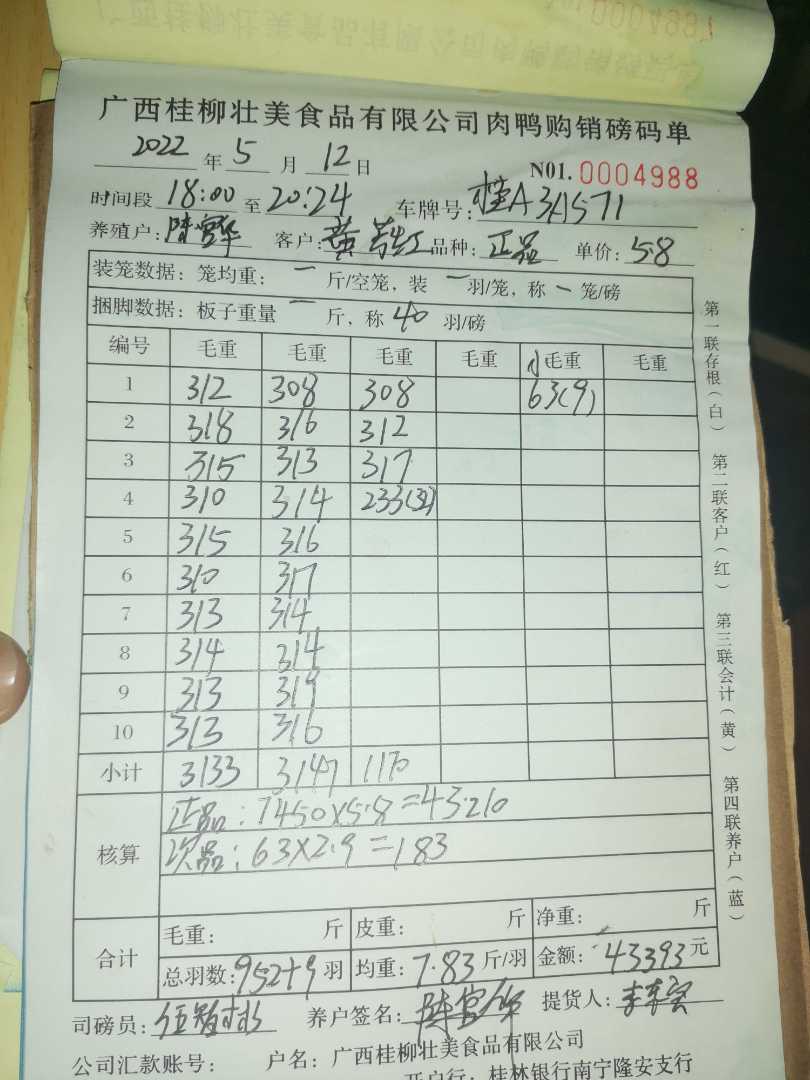 广西桂柳壮美食品有限公司肉鸭购销磅码单
2022 年 5 月 12 日 N01. 0004988
时间段 18:00 至 20:24 车牌号: 桂A3A571
养殖户: 客户: 黄 品种: 正品 单价: 5.8
装笼数据: 笼均重: 一 斤/空笼, 装 一 羽/笼, 称 一 笼/磅
捆脚数据: 板子重量 一 斤, 称 40 羽/磅
编号 毛重 毛重 毛重 毛重 小毛重 毛重
1 312 308 308 63(9)
2 318 316 312
3 315 313 317
4 310 314 233(32)
5 315 316
6 310 317
7 313 314
8 314 314
9 313 319
10 313 316
小计 3133 3147 1170
核算 正品: 7450×5.8=43210
次品: 63×2.9=183
合计 毛重: 斤 皮重: 斤 净重: 斤
总羽数: 952+9 羽 均重: 7.83 斤/羽 金额: 43393 元
司磅员: 养户签名: 提货人:
公司汇款账号: 户名: 广西桂柳壮美食品有限公司
开户行: 桂林银行南宁隆安支行
第一联存根(白) 第二联客户(红) 第三联会计(黄) 第四联养户(蓝)